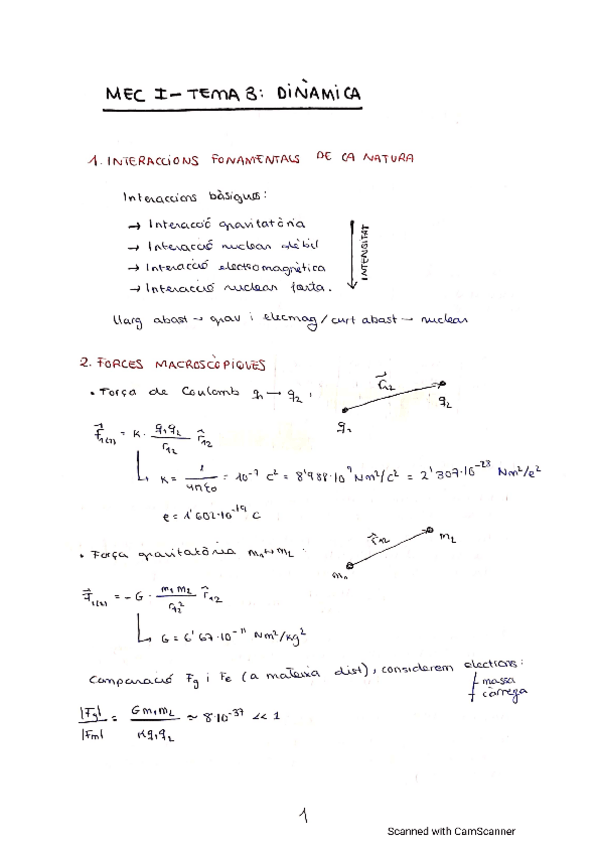 MEC I - TEMA 3: DINÀMICA
1. INTERACCIONS FONAMENTALS DE LA NATURA
Interaccions bàsiques:
→ Interacció gravitatòria
→ Interacció nuclear dèbil
→ Interacció electromagnètica
→ Interacció nuclear forta.
INTENSITAT
Llarg abast → grav i elecmag / curt abast → nuclear
2. FORCES MACROSCÒPIQUES
• Força de Coulomb q₁ → q₂ :
r⃗₁₂
q₁
q₂
F⃗₁₍₂₎ = K · q₁q₂ / r₁₂ r̂₁₂
K = 1 / 4πε₀ = 10⁻⁷ C² = 8'988·10⁹ Nm²/C² = 2'307·10⁻²⁸ Nm²/e²
e = 1'602·10⁻¹⁹ C
• Força gravitatòria m₁↔m₂ :
r̂₁₂
m₁
m₂
F⃗₁₍₂₎ = - G · m₁ m₂ / r₁₂² r̂₁₂
G = 6'67·10⁻¹¹ Nm²/kg²
Comparació Fg i Fe (a mateixa dist), considerem electrons:
massa
càrrega
|Fg| / |Fm| = G m₁m₂ / K q₁q₂ ≈ 8·10⁻³⁷ << 1
1
Scanned with CamScanner